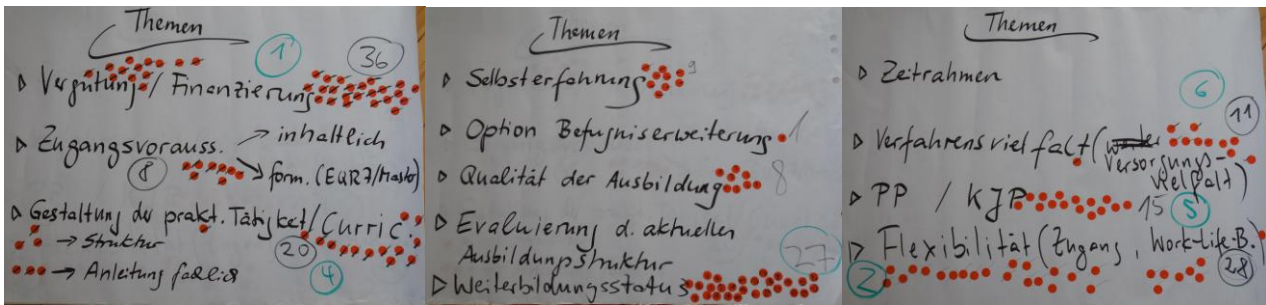 Themen
1
36
▷ Vergütung / Finanzierung
▷ Zugangsvorauss. → inhaltlich
8
→ form. (EQR7/Master)
▷ Gestaltung der prakt. Tätigkeit / Curric.
→ Struktur
20
→ Anleitung fachlich
4
Themen
▷ Selbsterfahrung
9
▷ Option Befugniserweiterung
1
▷ Qualität der Ausbildung
8
▷ Evaluierung d. aktuellen
Ausbildungsstruktur
27
▷ Weiterbildungsstatus
Themen
▷ Zeitrahmen
6
11
▷ Verfahrensvielfalt (
Versorgungs-
vielfalt)
▷ PP / KJP
15
5
▷ Flexibilität (Zugang, Work-Life-B.)
2
28